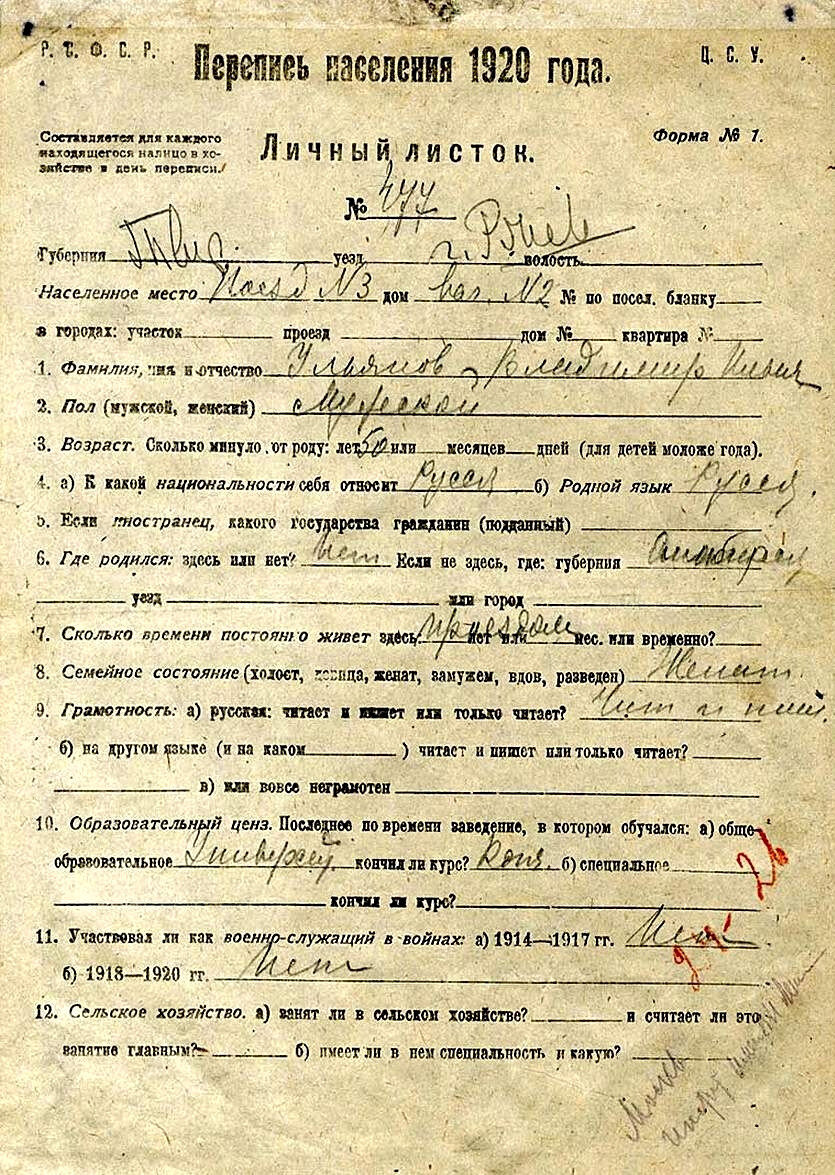 Р. С. Ф. С. Р. Ц. С. У.
Перепись населения 1920 года.
Составляется для каждого
находящегося налицо в хо-
зяйстве в день переписи.
Форма № 1.
Личный листок.
№ 477
Губерния уезд г. волость
Населенное место Поезд N3 дом ваг. N2 № по посел. бланку
в городах: участок проезд дом № квартира №
1. Фамилия, имя и отчество Ульянов Владимир Ильич
2. Пол (мужской, женский) Мужской
3. Возраст. Сколько минуло от роду: лет 50 или месяцев дней (для детей моложе года).
4. а) К какой национальности себя относит Русск б) Родной язык Русск.
5. Если иностранец, какого государства гражданин (подданный)
6. Где родился: здесь или нет? Нет Если не здесь, где: губерния Симбирск
уезд или город
7. Сколько времени постоянно живет здесь: проездом лет или мес. или временно?
8. Семейное состояние (холост, девица, женат, замужем, вдов, разведен) Женат.
9. Грамотность: а) русская: читает и пишет или только читает? Чит и пиш.
б) на другом языке (и на каком ) читает и пишет или только читает?
в) или вовсе неграмотен
10. Образовательный ценз. Последнее по времени заведение, в котором обучался: а) обще-
образовательное Универси. кончил ли курс? б) специальное
кончил ли курс?
11. Участвовал ли как военно-служащий в войнах: а) 1914—1917 гг. Нет
б) 1918—1920 гг. Нет
12. Сельское хозяйство. а) занят ли в сельском хозяйстве? и считает ли это
занятие главным? б) имеет ли в нем специальность и какую?